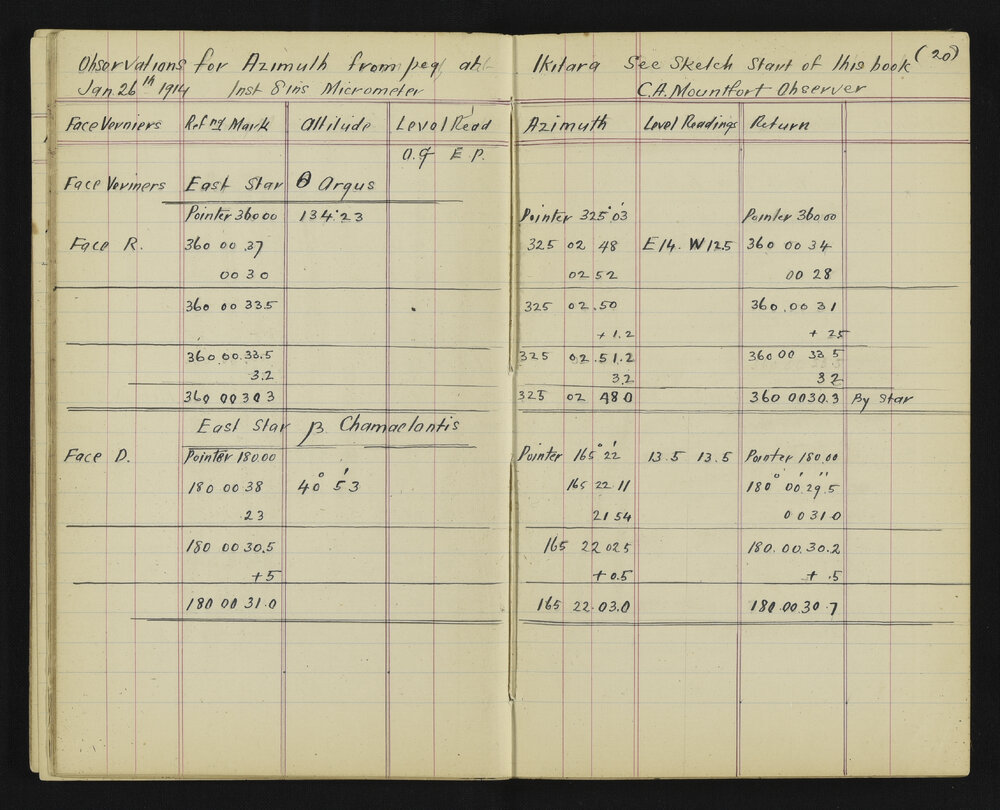 (20)
Observations for Azimuth from peg at Ikitara See Sketch Start of this book
Jan. 26th 1914 Inst 8 ins Micrometer C.A. Mountfort Observer
Face Verniers Refng Mark Altitude Level Read Azimuth Level Readings Return
O.g E P.
Face Verniers East Star θ Argus
Pointer 360 00 134° 23 Pointer 325° 03' Pointer 360 00
Face R. 360 00 37 325 02 48 E 14. W 12.5 360 00 34
00 30 02 52 00 28
360 00 33.5 325 02.50 360.00 31
+1.2 + 25
360 00.33.5 325 02.51.2 360 00 33 5
3.2 3.2 3 2
360 00 30 3 325 02 48 0 360 00 30.3 By Star
East Star β Chamaelontis
Face D. Pointer 180 00 Pointer 165° 22' 13.5 13.5 Pointer 180.00
180 00 38 40° 53' 165 22 11 180° 00' 29".5
.23 21 54 00 31 0
180 00 30.5 165 22 02 5 180.00.30.2
+5 +0.5 + .5
180 00 31.0 165 22.03.0 180.00 30.7